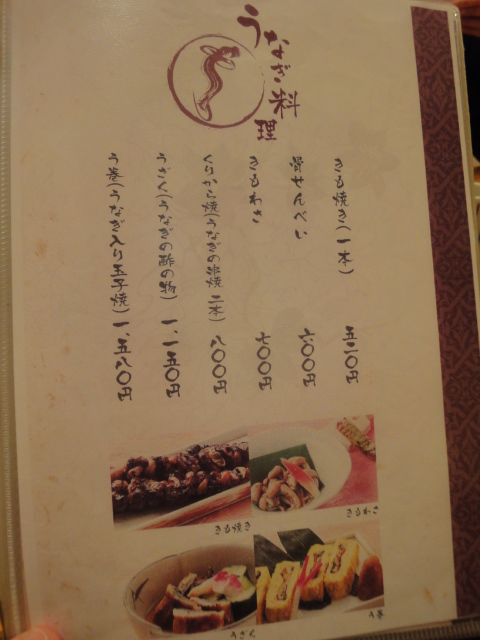 うなぎ料理
きも焼き(一本) 五二〇円
骨せんべい 六〇〇円
きもわさ 七〇〇円
くりから焼(うなぎの串焼 二本) 八〇〇円
うざく(うなぎの酢の物) 一、一五〇円
う巻(うなぎ入り玉子焼) 一、五八〇円
きも焼き
きもわさ
うざく
う巻